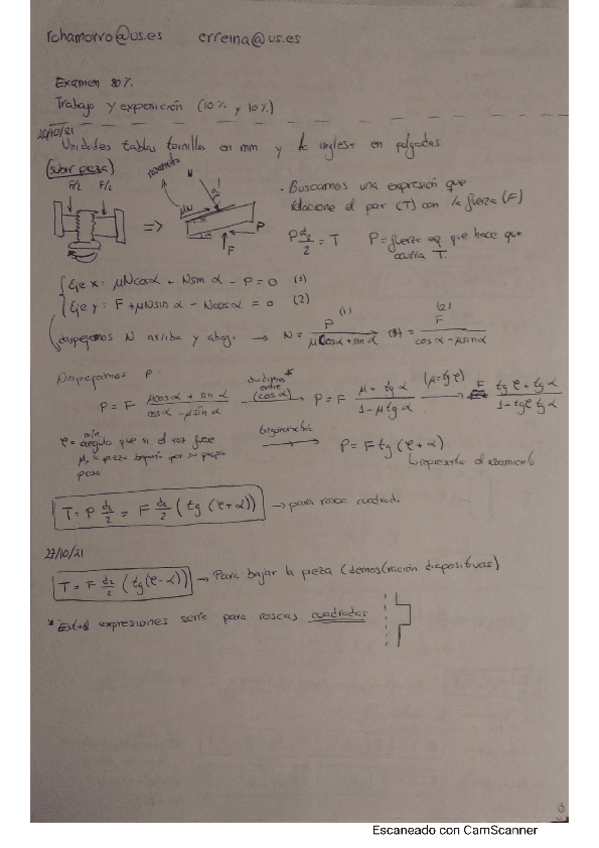 rchamorro@us.es erreina@us.es
Examen 80%
Trabajo y exposición (10% y 10%)
20/10/21
Unidades tablas tornillos en mm y la inglesa en pulgadas
(subir pieza)
F/2 F/2
N
μN
α
P
F
=>
- Buscamos una expresión que
relacione el par (T) con la fuerza (F)
P d₂/2 = T P = fuerza eq que hace que
ocurra T.
Eje x: μNcosα + Nsin α - P = 0 (1)
Eje y: F + μNsin α - Ncosα = 0 (2)
despejamos N arriba y abajo → N = P / (μcosα + sin α) (1) = F / (cos α - μsinα) (2)
Despejamos P:
P = F (μcosα + sin α) / (cosα - μsin α) dividimos* entre (cosα) → P = F (μ + tg α) / (1 - μ tg α) (μ = tg φ) → F (tg φ + tg α) / (1 - tg φ tg α)
φ = ángulo min que si el roz fuese
μ, la pieza bajaría por su propio
peso
trigonometría → P = F tg (φ + α)
representa el rozamiento
T = P d₂/2 = F d₂/2 (tg (φ + α)) → para rosca cuadrada
27/10/21
T = F d₂/2 (tg (φ - α)) → Para bajar la pieza (demostración diapositivas)
* Estas expresiones sería para roscas cuadradas
Escaneado con CamScanner